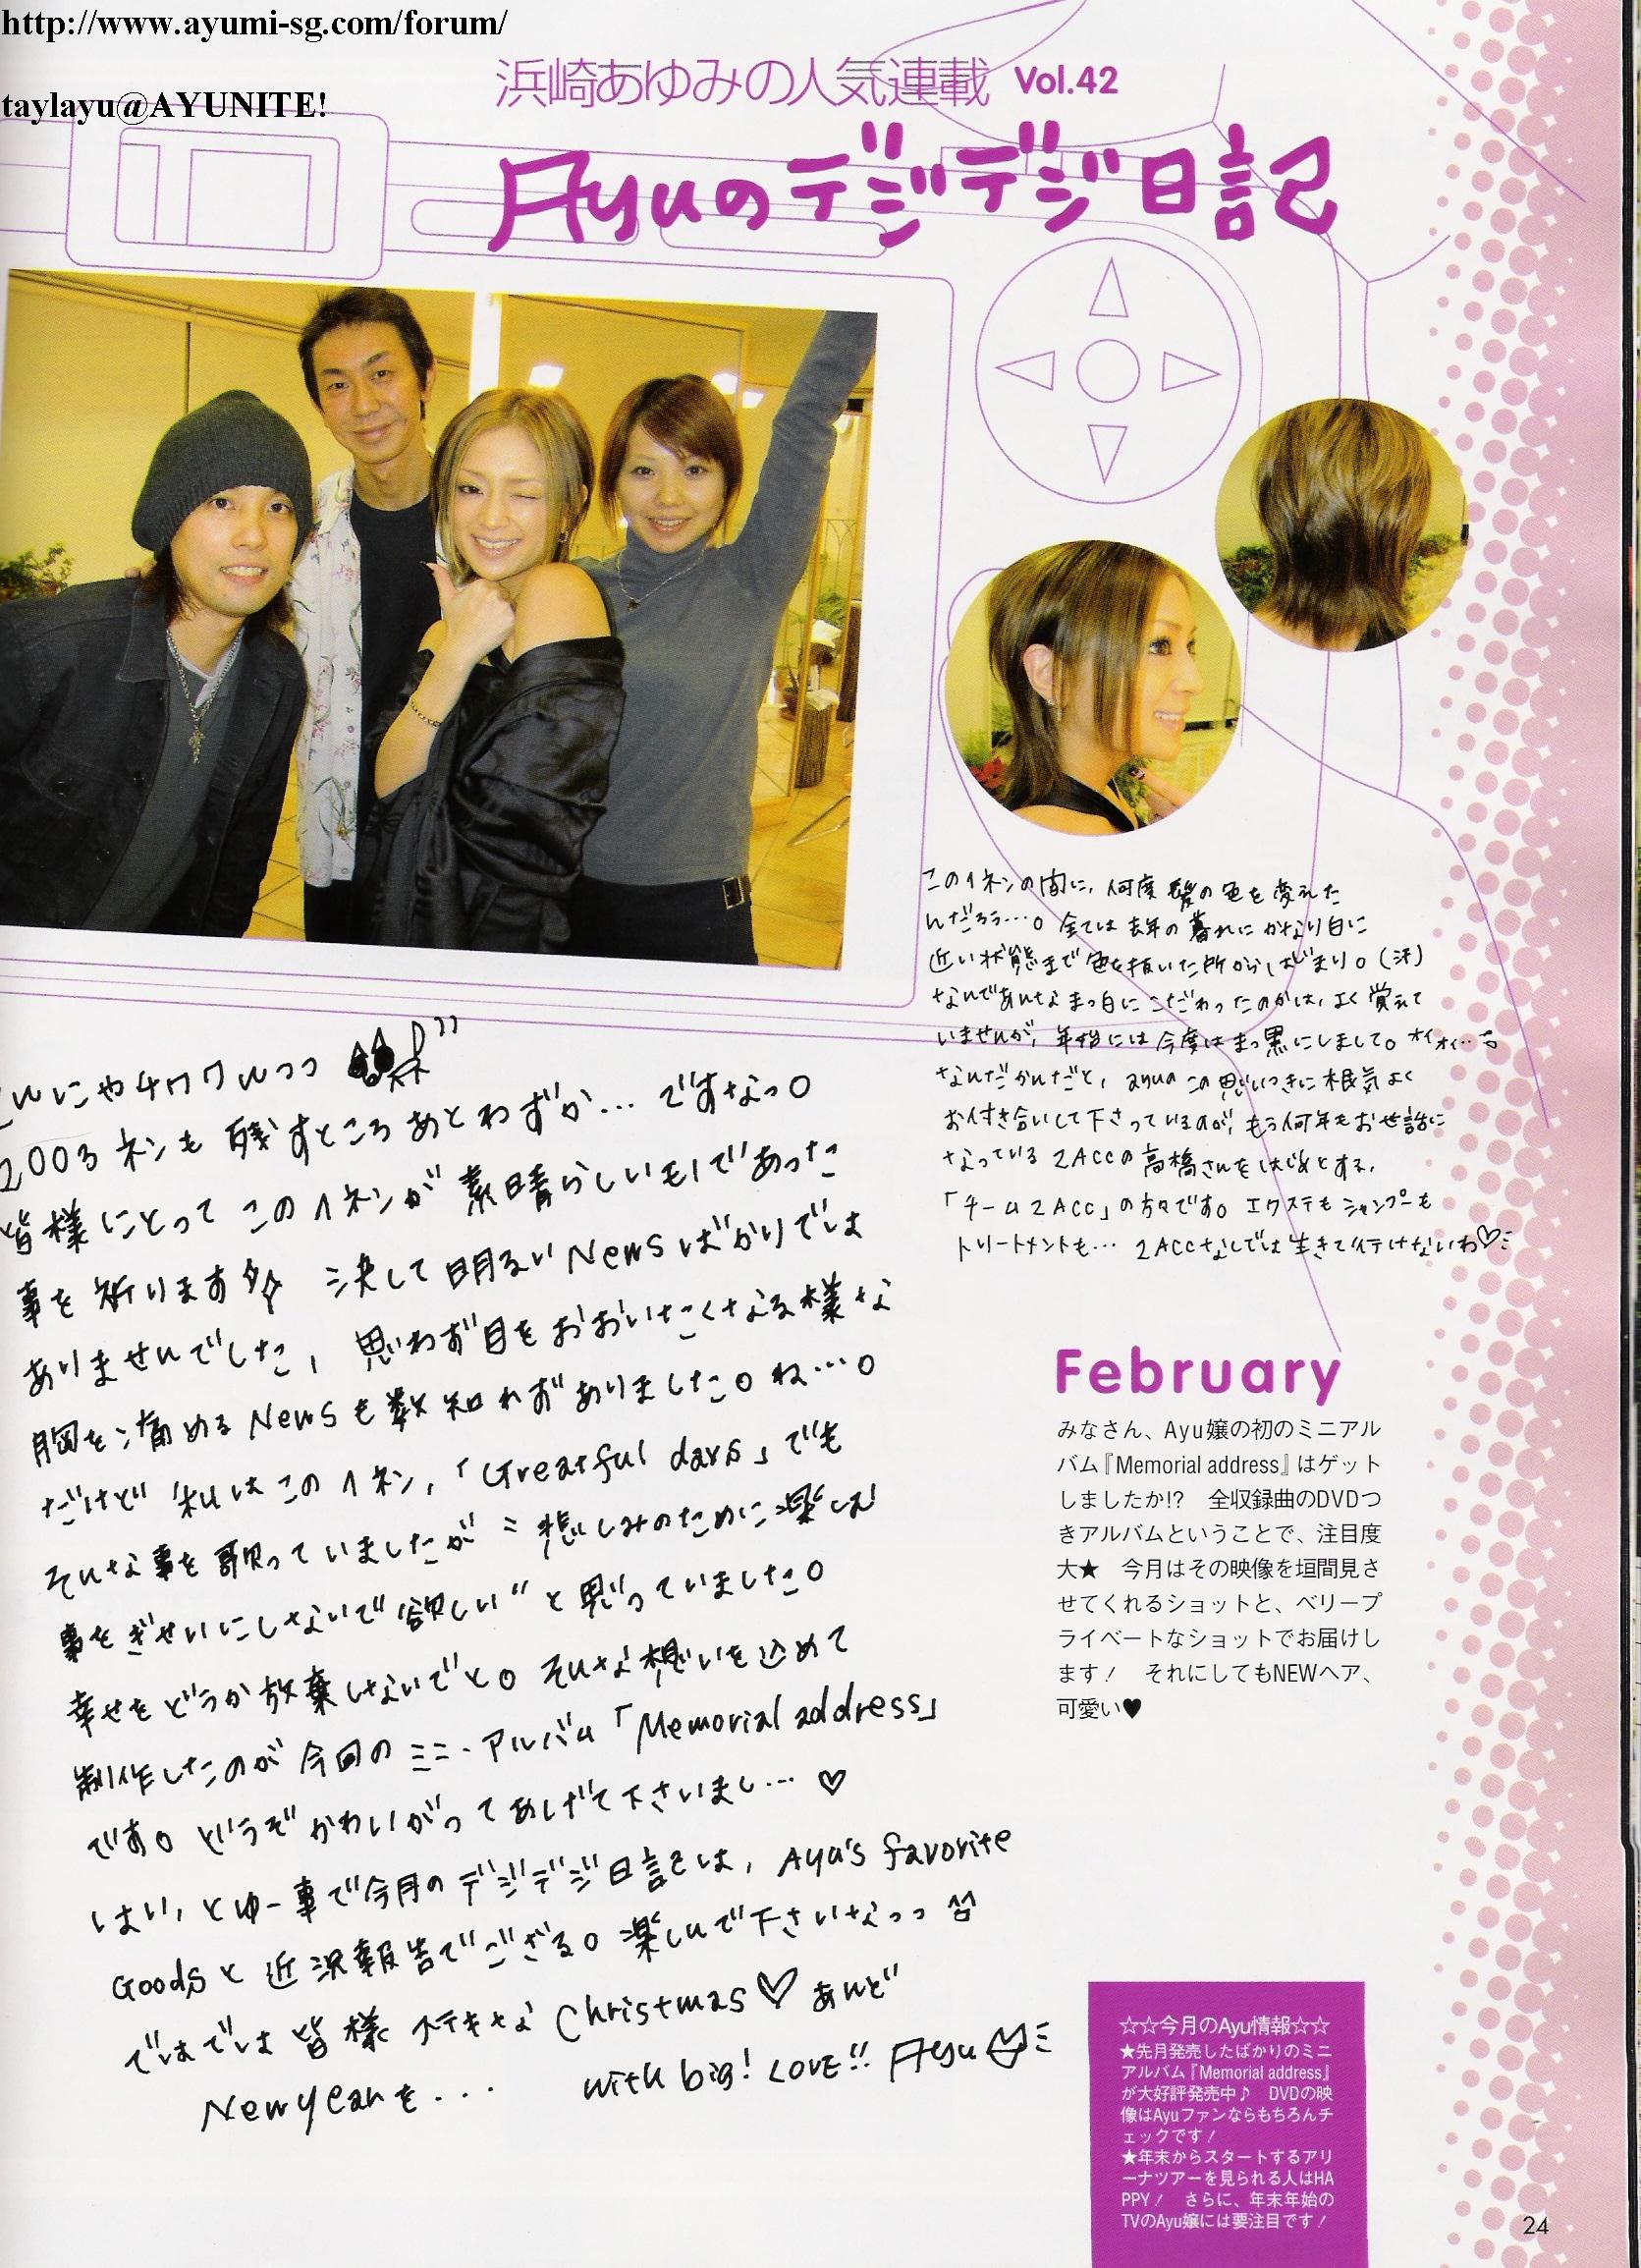 http://www.ayumi-sg.com/forum/
taylayu@AYUNITE!
浜崎あゆみの人気連載 Vol.42
Ayuのデジデジ日記
このイネンの間に、何度髪の色を変えた
んだろう…。全ては去年の暮れにかなり白に
近い状態まで色を抜いた所からはじまり。(汗)
なんであんなまっ白にこだわったのかは、よく覚えて
いませんが、年始には今度はまっ黒にしまして。オイオイ…
なんだかんだと、ayuのこの思いつきに根気よく
お付き合いして下さっているのが、もう何年もお世話に
なっている2ACCの高橋さんをはじめとする、
「チーム2ACC」の方々です。エクステもシャンプーも
トリートメントも… 2ACCなしでは生きて行けないわ♡
んにやチワワんっっ
2003ネンも残すところあとわずか…ですなっ。
皆様にとってこの1ネンが素晴らしいモノであった
事を祈ります☆ 決して明るいNewsばかりでは
ありませんでした、思わず目をおおいたくなる様な
胸を痛めるNewsも数知れずありました。ね…。
だけど私はこの1ネン,「Greatful days」でも
そんな事を歌っていましたが"悲しみのために楽しむ
事をぎせいにしないで欲しい"と思っていました。
幸せをどうか放棄しないでと。そんな想いを込めて
制作したのが今回のミニ・アルバム「Memorial address」
です。どうぞかわいがってあげて下さいまし…♡
はい、とゆー事で今月のデジデジ日記は、Ayu's favorite
Goodsと近況報告でござる。楽しんで下さいなっっ
ではでは皆様ステキなChristmas♡あんど
New yearを... with big! LOVE!! Ayu
February
みなさん、Ayu嬢の初のミニアル
バム『Memorial address』はゲット
しましたか!? 全収録曲のDVDつ
きアルバムということで、注目度
大★ 今月はその映像を垣間見さ
せてくれるショットと、ベリープ
ライベートなショットでお届けし
ます! それにしてもNEWヘア、
可愛い♥
☆☆今月のAyu情報☆☆
★先月発売したばかりのミニ
アルバム『Memorial address』
が大好評発売中♪ DVDの映
像はAyuファンならもちろんチ
ェックです!
★年末からスタートするアリ
ーナツアーを見られる人はHA
PPY! さらに、年末年始の
TVのAyu嬢には要注目です!
24